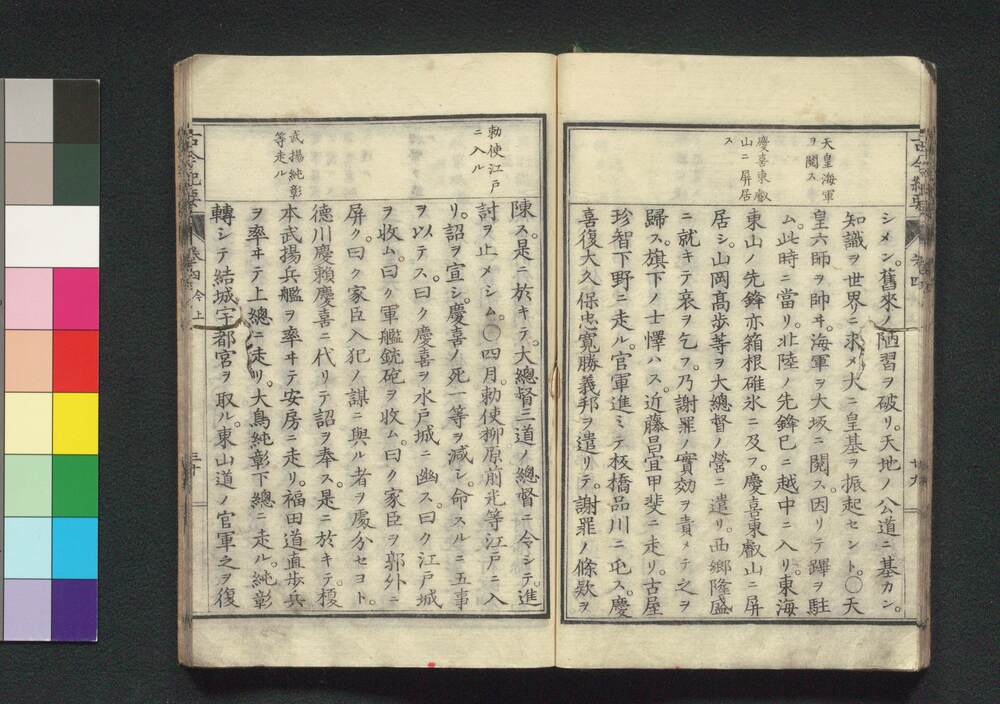 天皇海軍
ヲ閲ス
慶喜東叡
山ニ屏居
ス
シメン。舊來ノ陋習ヲ破リ。天地ノ公道ニ基カン。
知識ヲ世界ニ求メ大ニ皇基ヲ振起セント。〇天
皇六師ヲ帥ヰ。海軍ヲ大坂ニ閲ス。因リテ蹕ヲ駐
ム。此時ニ當リ。北陸ノ先鋒已ニ越中ニ入リ。東海
東山ノ先鋒亦箱根碓氷ニ及フ。慶喜東叡山ニ屏
居シ。山岡髙歩等ヲ大總督ノ營ニ遣リ。西郷隆盛
ニ就キテ哀ヲ乞フ。乃謝罪ノ實効ヲ責メテ之ヲ
歸ス。旗下ノ士懌ハス。近藤昌宜甲斐ニ走リ。古屋
珍智下野ニ走ル。官軍進ミテ板橋品川ニ屯ス。慶
喜復大久保忠寛勝義邦ヲ遣リテ。謝罪ノ條款ヲ
卷四
廿九
勅使江戸
ニ入ル
武揚純彰
等走ル
陳ス。是ニ於キテ。大總督三道ノ總督ニ令シテ。進
討ヲ止メシム。〇四月。勅使柳原前光等江戸ニ入
リ。詔ヲ宣シ。慶喜ノ死一等ヲ減シ。命スルニ五事
ヲ以テス。曰ク慶喜ヲ水戸城ニ幽ス。曰ク江戸城
ヲ收ム。曰ク軍艦銃砲ヲ收ム。曰ク家臣ヲ郭外ニ
屏ク。曰ク家臣入犯ノ謀ニ與ル者ヲ處分セヨト。
德川慶賴慶喜ニ代リテ詔ヲ奉ス。是ニ於キテ。榎
本武揚兵艦ヲ率ヰテ安房ニ走リ。福田道直歩兵
ヲ率ヰテ上總ニ走リ。大鳥純彰下總ニ走ル。純彰
轉シテ結城宇都宮ヲ取ル。東山道ノ官軍之ヲ復
古今紀要
卷四
今上
三十